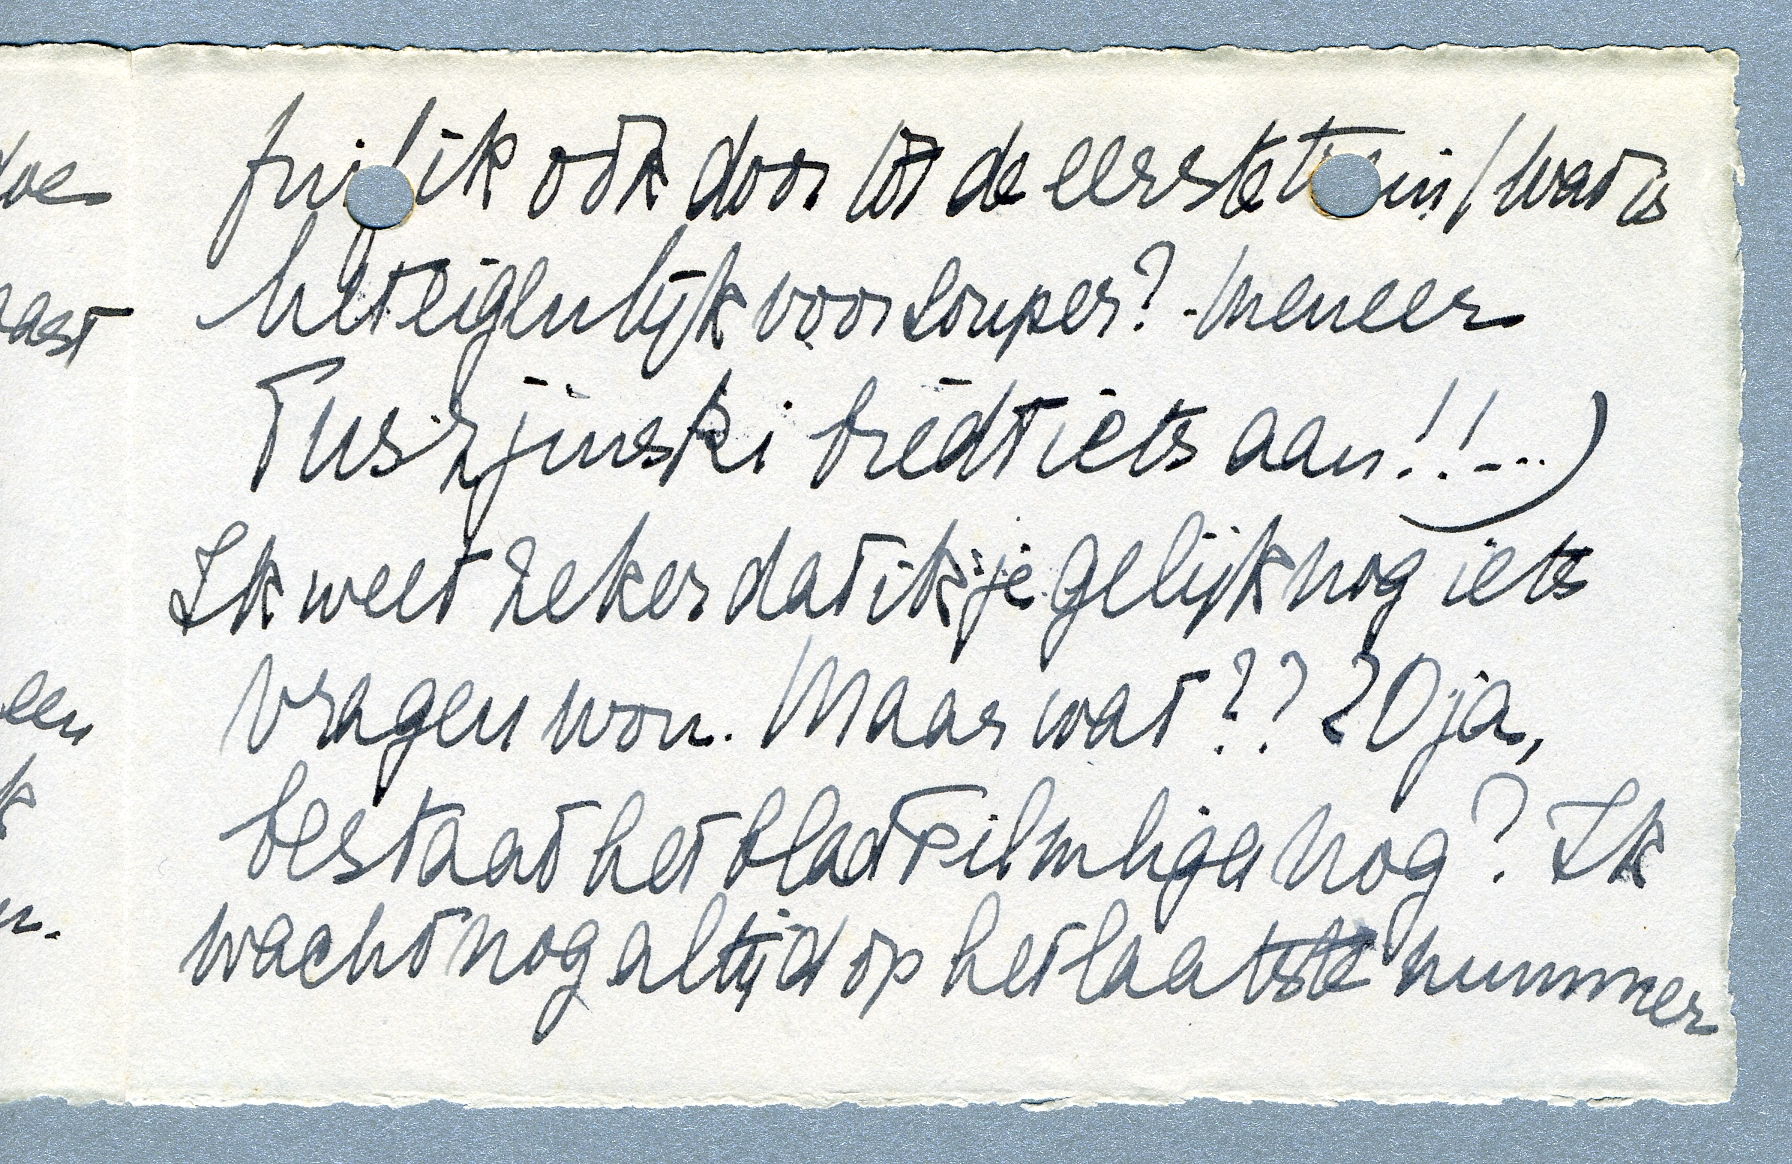 doe
aast
een
k
n.
fuif ik ook door tot de eerste trein (wat is
het eigenlijk voor souper? - Meneer
Tuszjinski biedt iets aan!!-..)
Ik weet zeker dat ik je gelijk nog iets
vragen wou. Maar wat??? O ja,
bestaat het blad Filmliga nog? Ik
wacht nog altijd op het laatste nummer